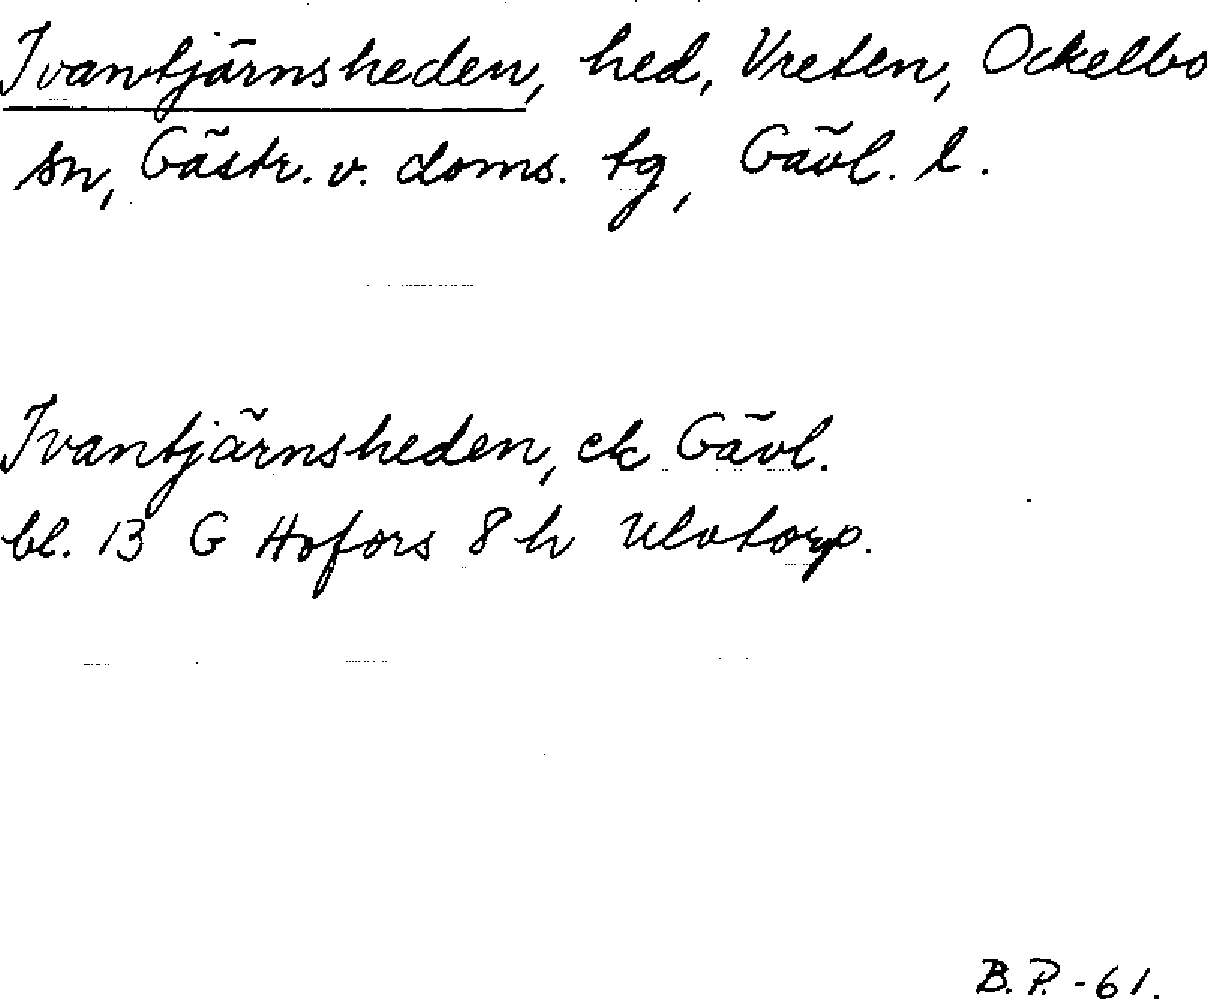 Ivantjärnsheden, hed, Vreten, Ockelbo
sn, Gästr. v. doms. tg, Gävl. l.
Ivantjärnsheden, ek Gävl.
bl. 13 G Hofors 8 h Ulvtorp.
B.P. -61.